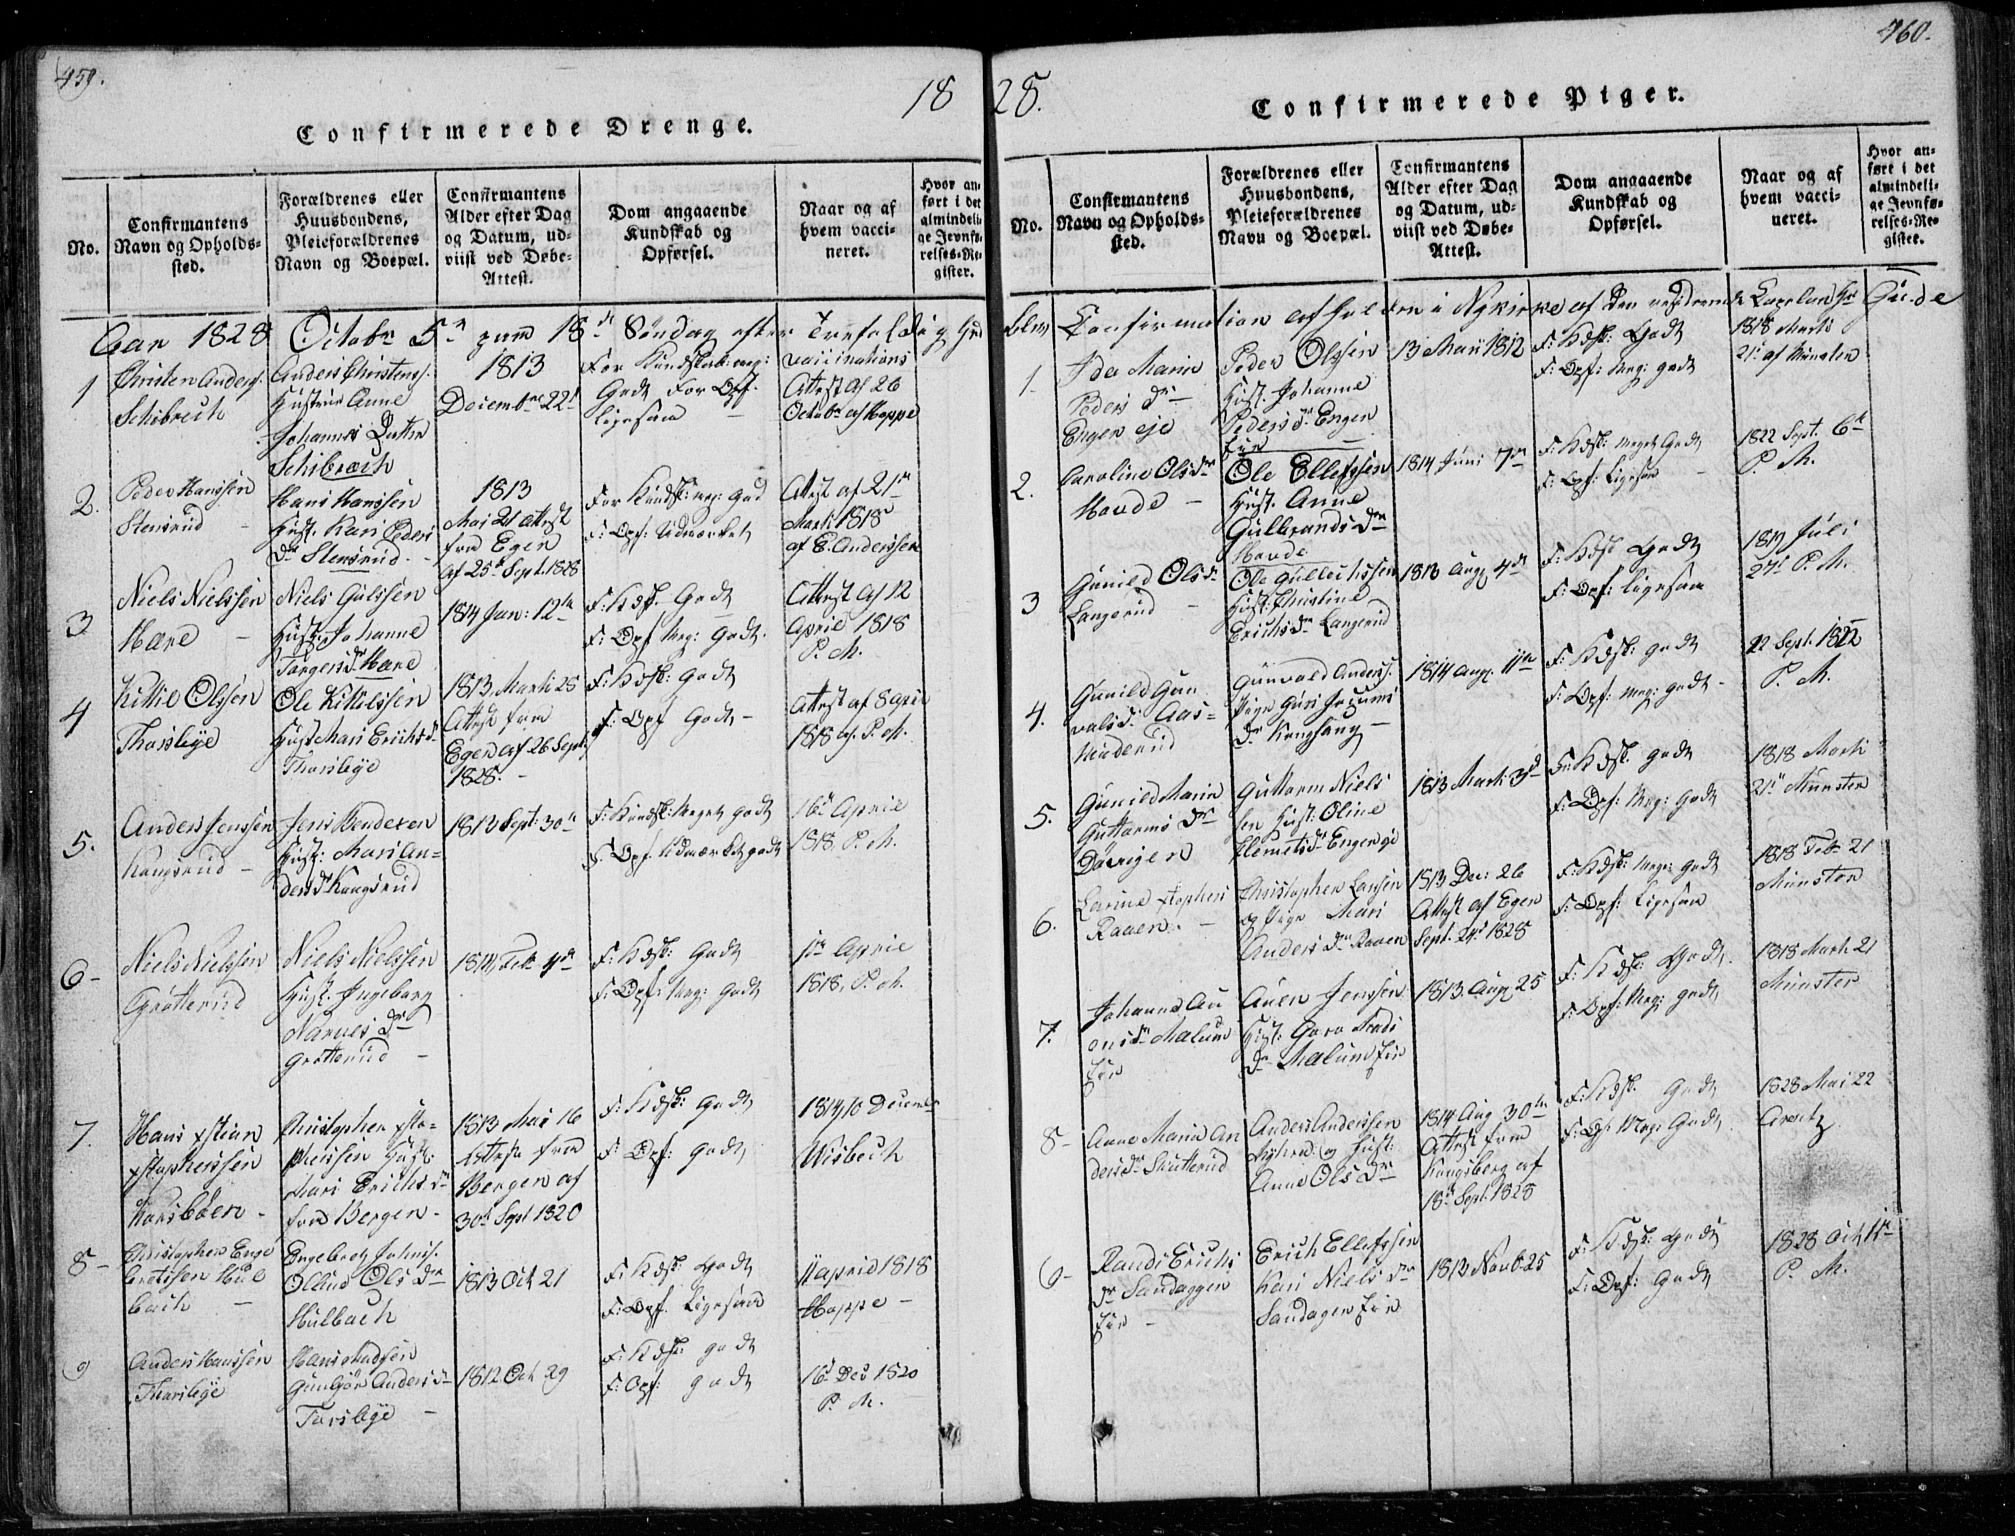 459.
18
Confirmerede Drenge.
No.
Confirmantens
Navn og Opholds-
sted.
Forældrenes eller
Huusbondens,
Pleieforældrenes
Navn og Boepæl.
Confirmantens
Alder efter Dag
og Datum, ud-
viist ved Døbe-
Attest.
Dom angaaende
Kundskab og
Opførsel.
Naar og af
hvem vacci-
neret.
Hvor an-
ført i det
almindeli-
ge Jevnfø-
relses-Re-
gister.
Aar 1828 Octobr 5te 18de Søndag efter Trefoldig
1
Christen Anders.
Schibrech
Anders Christens.
Hustrue Anne
Johannes Datter
Schibrech
1813
Decembr 22
For Kundskab meg:
Godt For Opf.
ligesaa
Vaccinations
Attest af 26
Octobr af Hoppe
2.
Peder Hanssen
Stensrud
Hans Hanssen
Hust. Kari Peders
Dr Stensrud
1813
Mai 21 Attest
fra Eger
af 25 Sept. 1828
For Kundsk: meg: God
F: Opf: Udmærket
Attest af 21
Marti 1818
af E. Anderssen
3
Niels Nielssen
Hære
Niels Gulssen
Hust: Johanne
Torgersdr Hære
1814 Jan: 12te
F: Kdsk: Godt
F: Opf Meg: Godt.
Attest af 12
April 1818
P. M.
4
Kittil Olssen
Thorsbye
Ole Kittilssen
Hust Mari Erichsdr
Thorsbye
1813 Marti 28
Attest fra
Eger af 26 Sept.
1828.
F: Kdsk: Godt
F: Opf Godt
Attest af 8 April
1818 af. P. M.
5.
Anders Jenssen
Kongsrud
Jens Hendrxen
Hust: Mari An-
dersdr Kongsrud
1813 Sept: 30te
F: Kundsk: Meget godt
F. Opf. Udmærket godt
16 April
1818 P. M.
6
Niels Nielssen
Grøtterud
Niels Nielssen
Hust. Ingeborg
Narves Dr
Grøtterud
1814 Feb 4de
F: Kdsk: Godt
F: Opf: Meg: Godt
1te April
1818, P. M.
7.
Hans xstian
xstophersen
Christopher xsto-
phersen Hust:
Mari Erichsdr
fra Bergen
1813 Mai 16
Attest fra
Bergen af
30te Sept 1820
F: Kdsk: Godt
F: Opf: Godt
1814 10 December
Wisbech
8
Christopher Enge
bretssen Hul
bach
Engebret Johns.
Ols Dr
Hulbach
1813 Oct 21
F: Kdsk: Godt
F: Opf. Ligesaa
11 April 1818
Hoppe
9
Anders Hanssen
Thorsbye
Hans Madsen
Gunbjør Anders Dr
Torsbye
1812 Oct 29
F: Kdsk: godt
F: Opf: godt
16 Dec 1820
P. M.
460.
28.
Confirmerede Piger.
No.
Confirmantens
Navn og Opholds-
sted.
Forældrenes eller
Huusbondens,
Pleieforældrenes
Navn og Boepæl.
Confirmantens
Alder efter Dag
og Datum, ud-
viist ved Døbe-
Attest.
Dom angaaende
Kundskab og
Opførsel.
Naar og af
hvem vacci-
neret.
Hvor an-
ført i det
almindeli-
ge Jevnfø-
relses-Re-
gister.
Confirmation af holden i Nykirke af den residerende Capelan Hr Giede
1.
Ida Marie
Peders Dr
Engen eje
Peder Olssen
Hust. Johanne
Pedersdr Engen
Eie
13 Marti 1812
F: Kdsk: Godt
F: Opf: Meg: godt
1818 Marti
21 af Münster
2.
Caroline Olsdr
Hovde
Ole Ellefssen
Hust. Anne
Gulbrands Dr
Hovde
1814 Juni 7de
F: Kdsk: Meget Godt
F: Opf: Ligesaa
1822 Sept. 6te
P. M.
3
Gunild Olsdr
Langerud
Ole Gullichssen
Hust: Christine
Erichsdr Langerud
1813 Aug 4de
F: Kdsk Godt
F: Opf: ligesaa
1819 Juli
27 P. M.
4.
Gunild Gun
valsdr Aas-
Gunvald Anders.
Pige Guri
1814 Aug 11te
F: Kdsk: godt
F: Opf: Meg: godt
22 Sept. 1822
P. M.
5.
Gunild Maria
Guttorms Dr
Guttorm Niels
sen Hust: Oline
Klemetsdr Engen eje
1813 Marti 3de
F: Kdsk. godt
F: Opf: Meg: Godt
1818 Marti
21 Münster
6.
Larine xstophers
Raaen
Christopher Larsen
og Pige Mari
Anders Dr Raaen
1813 Dec: 26
Attest af Eger
Sept. 24 1828
F: Kdsk: Meg: Godt
F: Opf: Ligesaa
1818 Feb 21
Münster
7.
Johanne Au
ensdr Malum
Eie
Auen Jenssen
Hust: Goro
Dr Malum Eie
1813 Aug 25
F: Kdsk: Godt.
F: Opf: Meg: godt
1818 Marti 21
Münster
8
Anne Maria An
dersdr Skutterud
Anders Anderssen
og Hust:
Anne Ols Dr
1814 Aug 30te
Attest fra
Kongsberg af
18 Sept. 1828
F: Kdsk: Godt
F: Opf: Meg: Godt
1828 Mai 22
9
Randi Erichs
Dr Sandaggen
Eie
Erich Ellefssen
Kari Niels Dr
Sandagen Eie
1813 Novb 25
F: Kdsk: Godt
F: Opf: Godt
1828 Oct 1te
P. M.